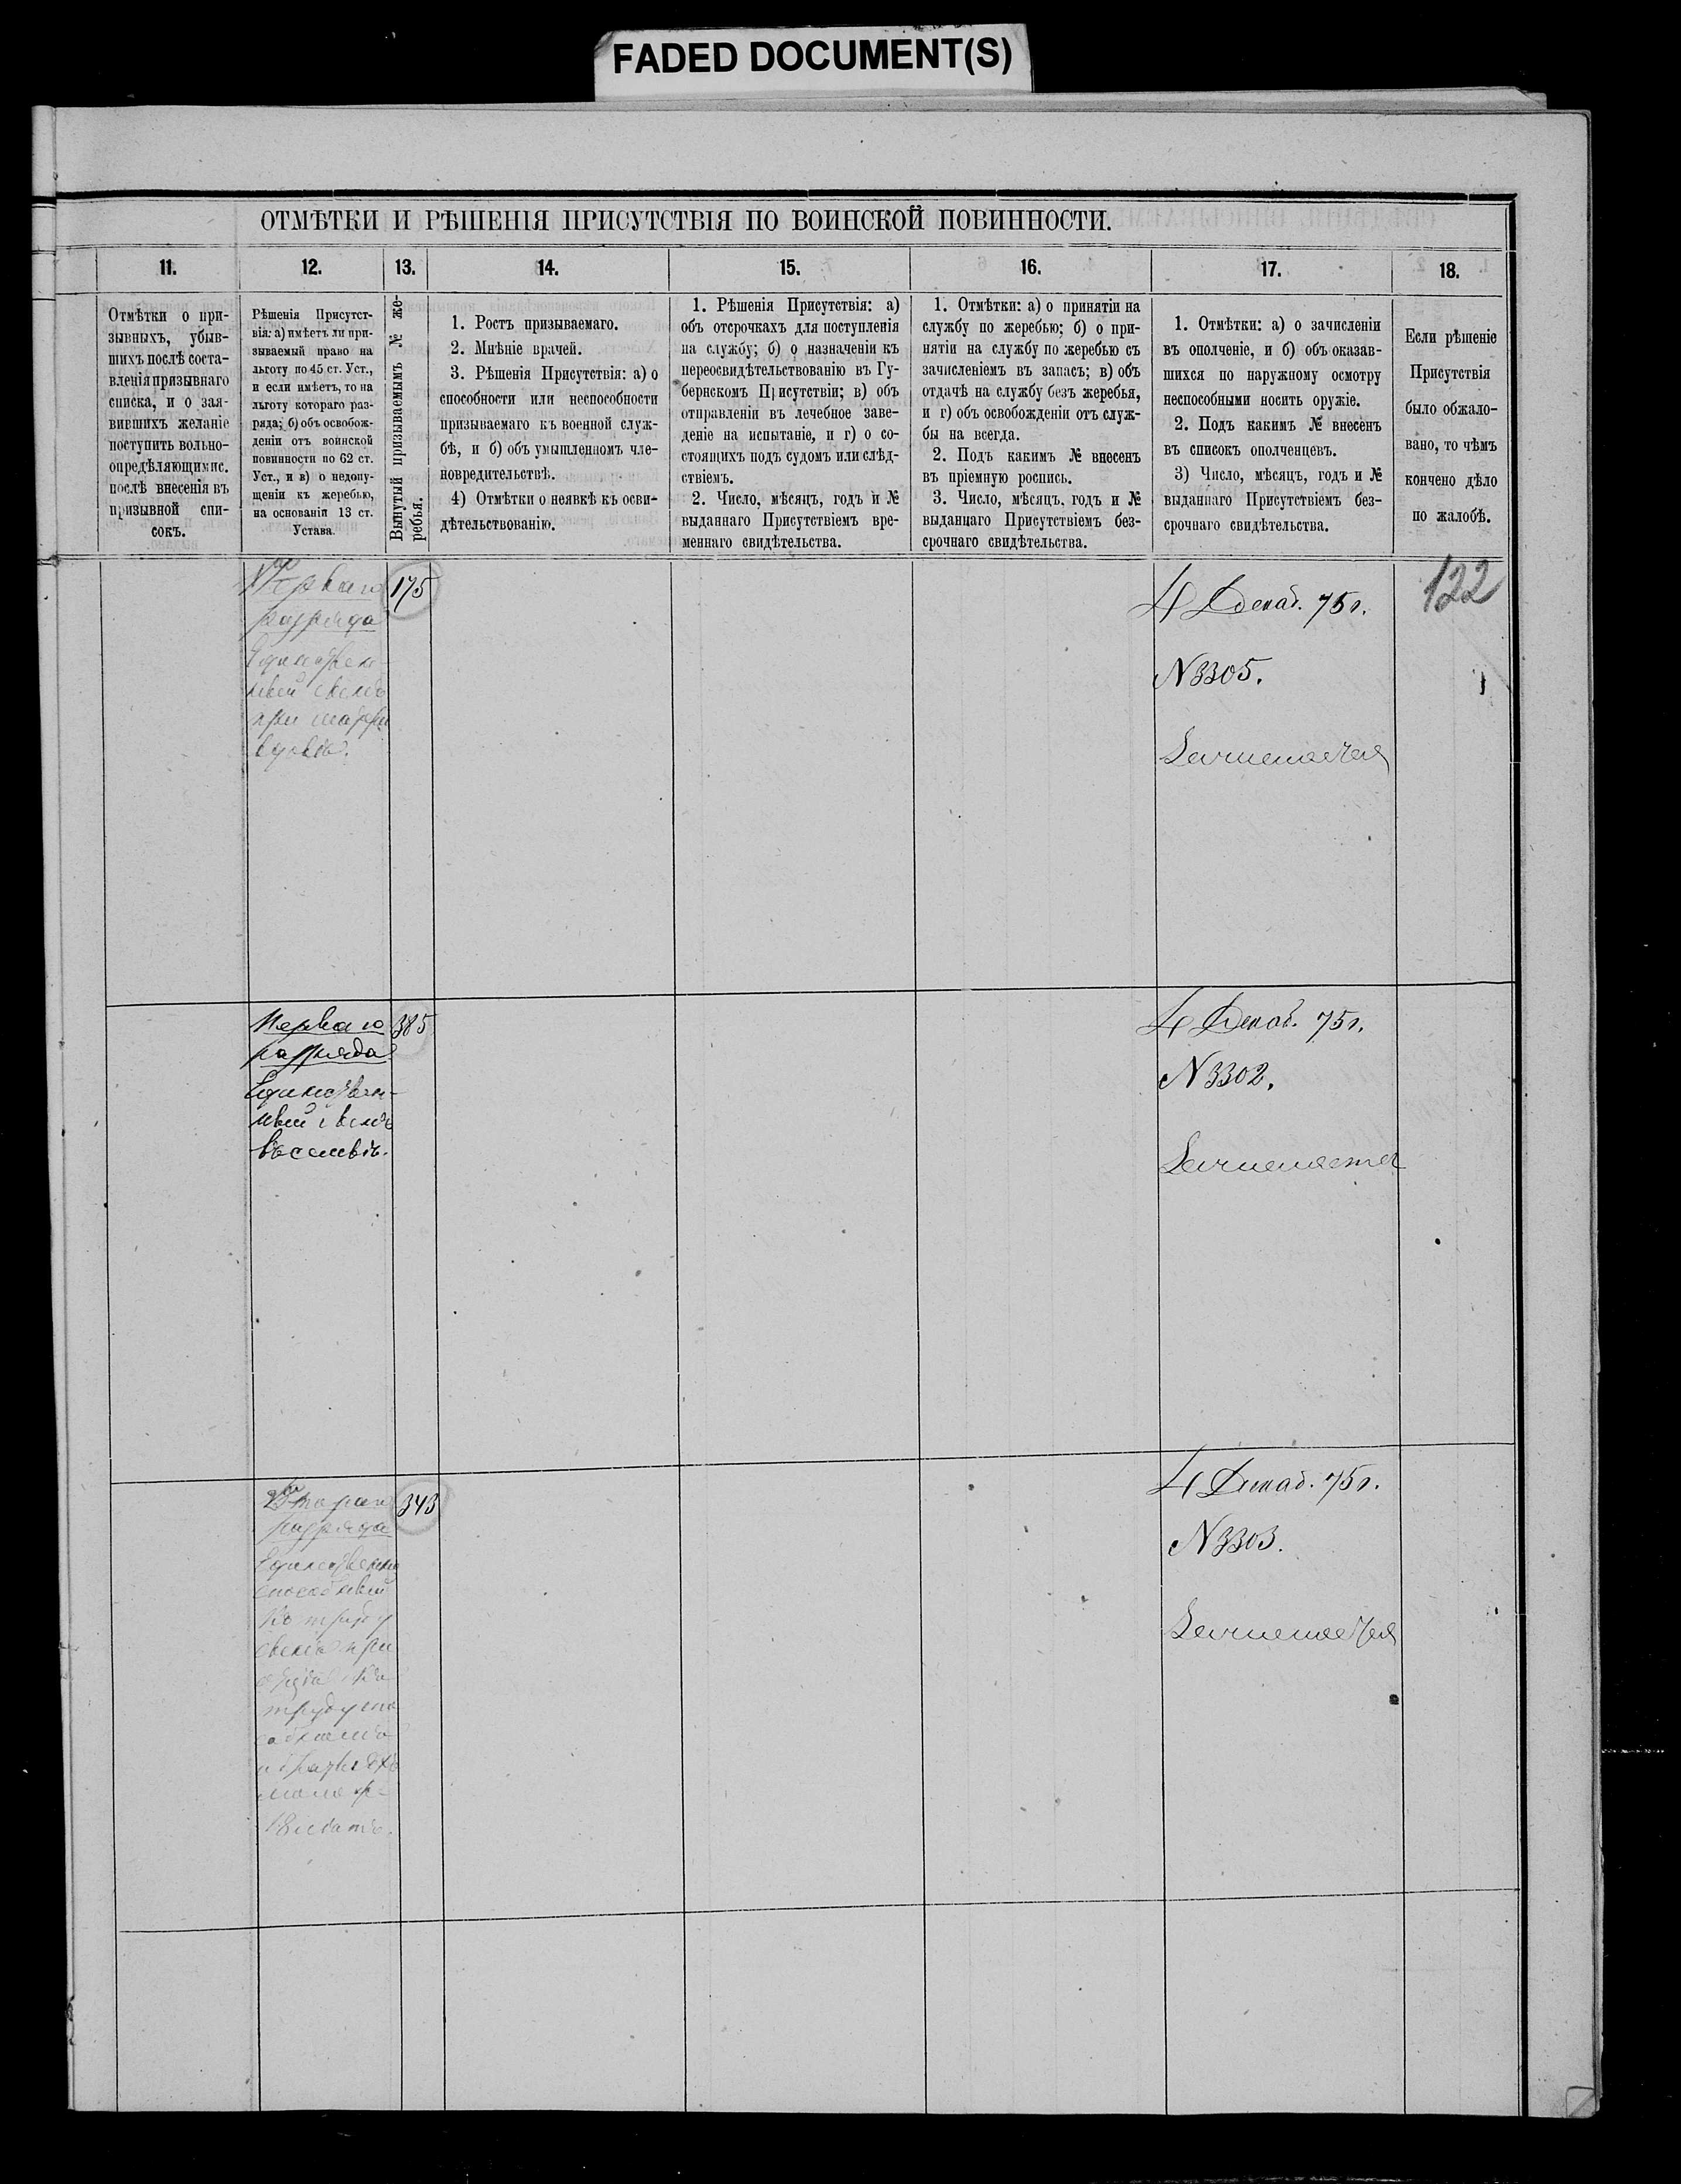 FADED DOCUMENT(S)
ОТМѢТКИ И РѢШЕНІЯ ПРИСУТСТВІЯ ПО ВОИНСКОЙ ПОВИННОСТИ.
11.
12.
13.
14.
15.
16.
17.
18.
Отмѣтки о при-
зывныхъ, убыв-
шихъ послѣ соста-
вленія призывнаго
списка, и о зая-
вившихъ желаніе
поступить вольно-
опредѣляющимис.
послѣ внесенія въ
призывной спи-
сокъ.
Рѣшенія Присутст-
вія: а) имѣетъ ли при-
зываемый право на
льготу по 45 ст. Уст.,
и если имѣетъ, то на
льготу котораго раз-
ряда; б) объ освобож-
деніи отъ воинской
повинности по 62 ст.
Уст., и в) о недопу-
щеніи къ жеребью,
на основаніи 13 ст.
Устава.
Вынутый призываемымъ № же-
ребья.
1. Ростъ призываемаго.
2. Мнѣніе врачей.
3. Рѣшенія Присутствія: а) о
способности или неспособности
призываемаго къ военной служ-
бѣ, и б) объ умышленномъ чле-
новредительствѣ.
4) Отмѣтки о неявкѣ къ осви-
дѣтельствованію.
1. Рѣшенія Присутствія: а)
объ отсрочкахъ для поступленія
на службу; б) о назначеніи къ
переосвидѣтельствованію въ Гу-
бернскомъ Присутствіи; в) объ
отправленіи въ лечебное заве-
деніе на испытаніе, и г) о со-
стоящихъ подъ судомъ или слѣд-
ствіемъ.
2. Число, мѣсяцъ, годъ и №
выданнаго Присутствіемъ вре-
меннаго свидѣтельства.
1. Отмѣтки: а) о принятіи на
службу по жеребью; б) о при-
нятіи на службу по жеребью съ
зачисленіемъ въ запасъ; в) объ
отдачѣ на службу безъ жеребья,
и г) объ освобожденіи отъ служ-
бы на всегда.
2. Подъ какимъ № внесенъ
въ пріемную роспись.
3. Число, мѣсяцъ, годъ и №
выданнаго Присутствіемъ без-
срочнаго свидѣтельства.
1. Отмѣтки: а) о зачисленіи
въ ополченіе, и б) объ оказав-
шихся по наружному осмотру
неспособными носить оружіе.
2. Подъ какимъ № внесенъ
въ списокъ ополченцевъ.
3) Число, мѣсяцъ, годъ и №
выданнаго Присутствіемъ без-
срочнаго свидѣтельства.
Если рѣшеніе
Присутствія
было обжало-
вано, то чѣмъ
кончено дѣло
по жалобѣ.
Перваго
разряда
Единствен-
ный сынъ
при матери
вдовѣ.
175
4 Декаб. 75г.
N 3305.
122
Перваго
разряда
Единствен-
ный сынъ
въ семьѣ.
385
4 Декаб. 75г.
N 3302.
Втораго
разряда
Единственно
способный
къ труду
сынъ при
отцѣ къ
труду
и братьяхъ
343
4 Декаб. 75г.
N 3303.